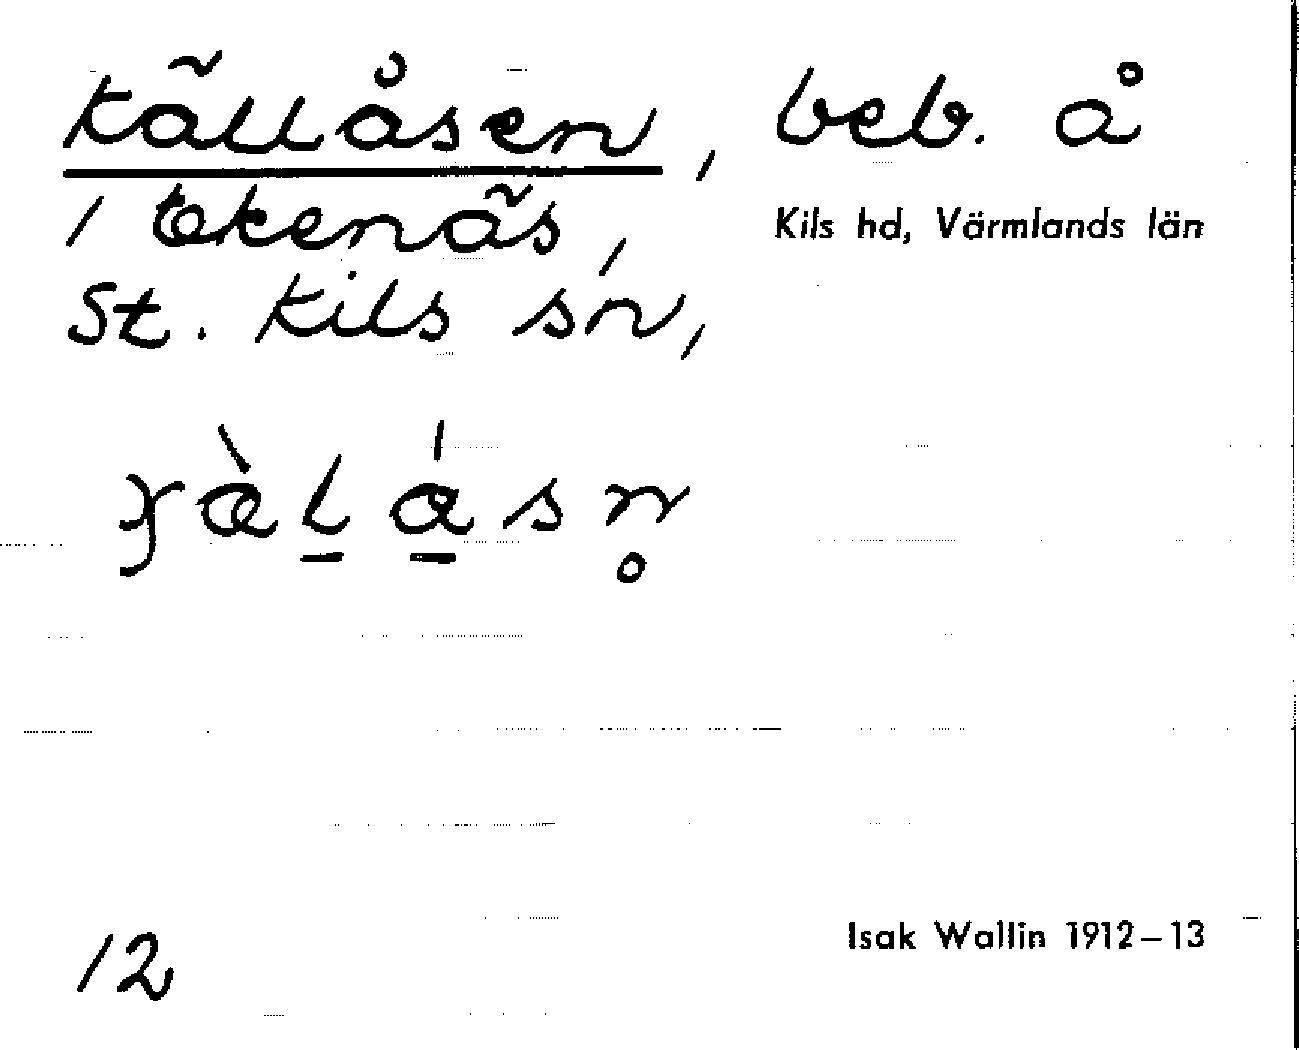 Källåsen, beb. å
1 Ekenäs,
Kils hd, Värmlands län
St. Kils sn,
12
Isak Wallin 1912–13